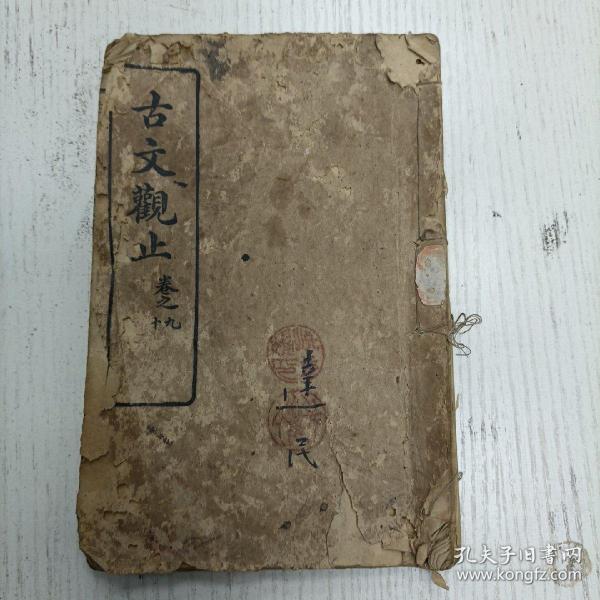 古文觀止
卷之
九十
民
孔夫子旧书网
www.kongfz.com